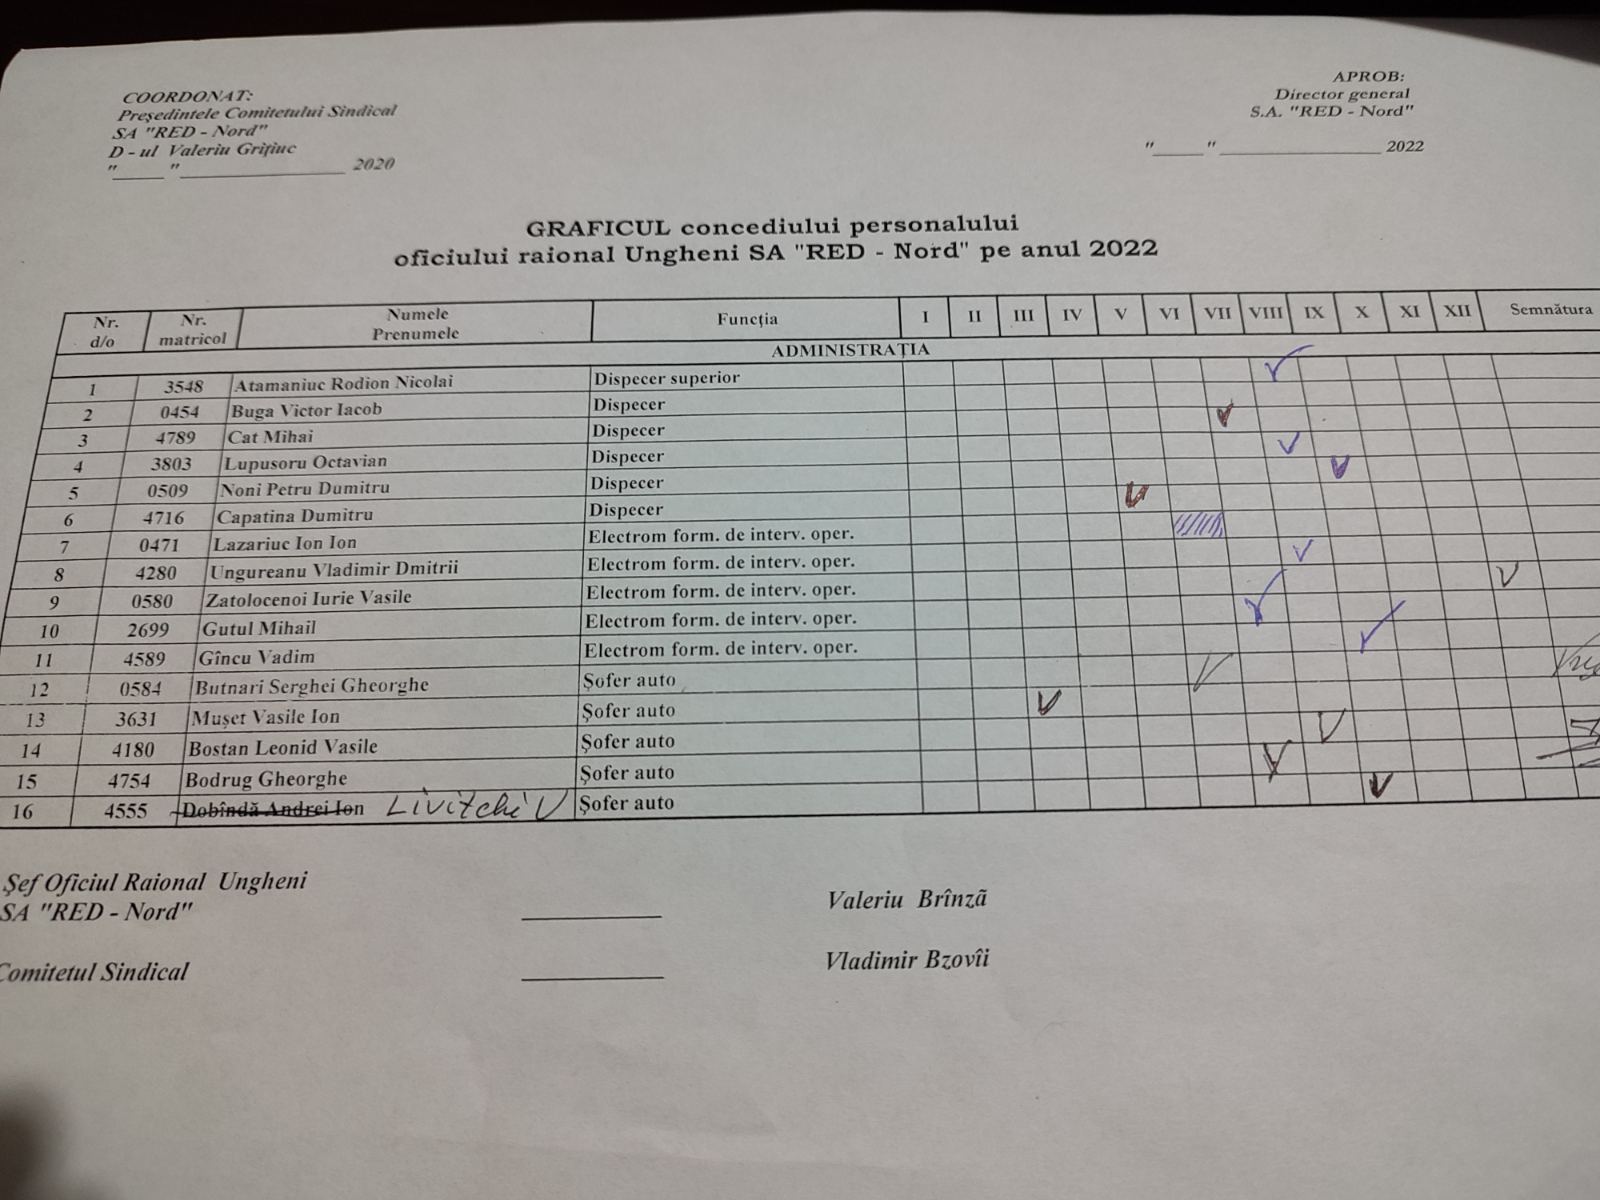 COORDONAT:
Preşedintele Comitetului Sindical
SA "RED - Nord"
D - ul Valeriu Griţiuc
"_____ "_______________ 2020
APROB:
Director general
S.A. "RED - Nord"
"_____ " _______________ 2022
GRAFICUL concediului personalului
oficiului raional Ungheni SA "RED - Nord" pe anul 2022
Nr. d/o Nr. matricol Numele Prenumele Funcţia I II III IV V VI VII VIII IX X XI XII Semnătura
ADMINISTRAŢIA
1 3548 Atamaniuc Rodion Nicolai Dispecer superior
2 0454 Buga Victor Iacob Dispecer
3 4789 Cat Mihai Dispecer
4 3803 Lupusoru Octavian Dispecer
5 0509 Noni Petru Dumitru Dispecer
6 4716 Capatina Dumitru Dispecer
7 0471 Lazariuc Ion Ion Electrom form. de interv. oper.
8 4280 Ungureanu Vladimir Dmitrii Electrom form. de interv. oper.
9 0580 Zatolocenoi Iurie Vasile Electrom form. de interv. oper.
10 2699 Gutul Mihail Electrom form. de interv. oper.
11 4589 Gîncu Vadim Electrom form. de interv. oper.
12 0584 Butnari Serghei Gheorghe Şofer auto
13 3631 Muşet Vasile Ion Şofer auto
14 4180 Bostan Leonid Vasile Şofer auto
15 4754 Bodrug Gheorghe Şofer auto
16 4555 Dobîndă Andrei Ion Livitchi V Şofer auto
Şef Oficiul Raional Ungheni
SA "RED - Nord" __________ Valeriu Brînzã
Comitetul Sindical __________ Vladimir Bzovîi